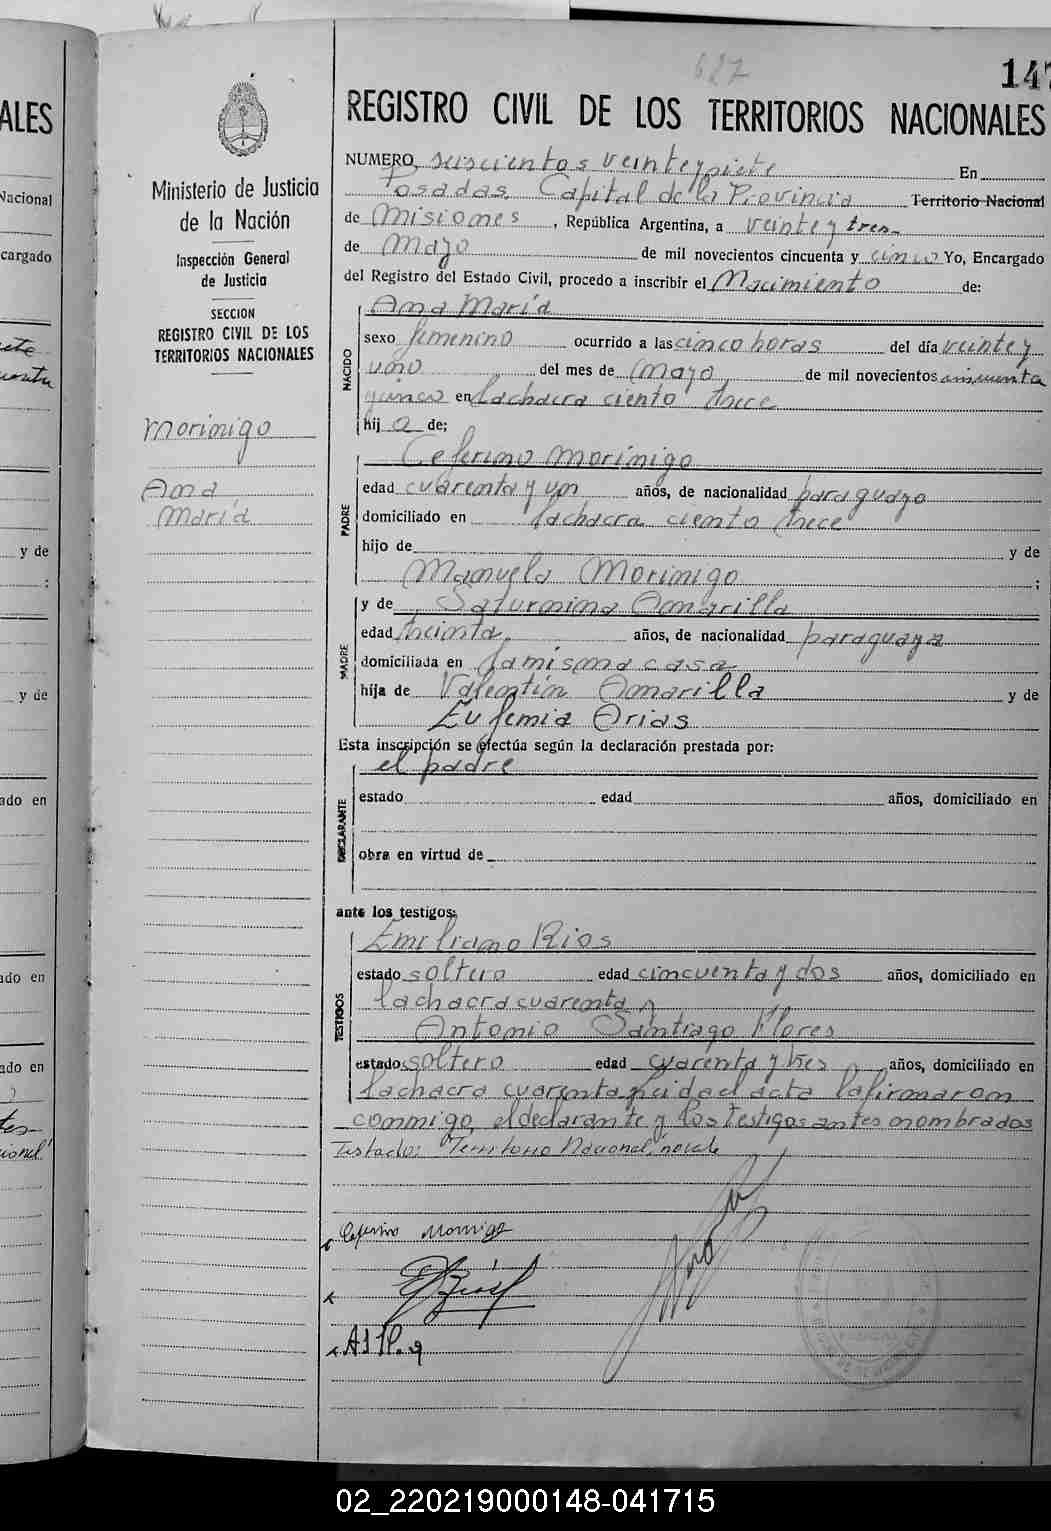 627
147
REGISTRO CIVIL DE LOS TERRITORIOS NACIONALES
Ministerio de Justicia
de la Nación
Inspección General
de Justicia
SECCION
REGISTRO CIVIL DE LOS
TERRITORIOS NACIONALES
Morinigo
Ana
Maria
NUMERO seiscientos veinte y siete En
Posadas, Capital de la Provincia Territorio Nacional
de Misiones, República Argentina, a veinte y tres
de Mayo de mil novecientos cincuenta y cinco Yo, Encargado
del Registro del Estado Civil, procedo a inscribir el Nacimiento de:
NACIDO
Ana María
sexo femenino ocurrido a las cinco horas del día veinte y
uno del mes de Mayo de mil novecientos cincuenta
y cinco en la chacra ciento trece
hij a de;
PADRE
Ceferino Morinigo
edad cuarenta y un años, de nacionalidad paraguayo
domiciliado en la chacra ciento trece
hijo de y de
Manuela Morinigo ;
MADRE
y de Saturnina Amarilla
edad treinta, años, de nacionalidad paraguaya
domiciliada en la misma casa
hija de Valentín Amarilla y de
Eufemia Arias
Esta inscripción se efectúa según la declaración prestada por:
el padre
DECLARANTE
estado edad años, domiciliado en
obra en virtud de
ante los testigos:
TESTIGOS
Emiliano Rios
estado soltero edad cincuenta y dos años, domiciliado en
la chacra cuarenta y
Antonio Santiago Flores
estado soltero edad cuarenta y tres años, domiciliado en
la chacra cuarenta, leida el acta la firmaron
conmigo, el declarante y los testigos antes nombrados
Testado: "Territorio Nacional," no vale
Ceferino Morinigo
ALES
Nacional
cargado
y de
;
y de
ado en
ado en
ado en
02_220219000148-041715